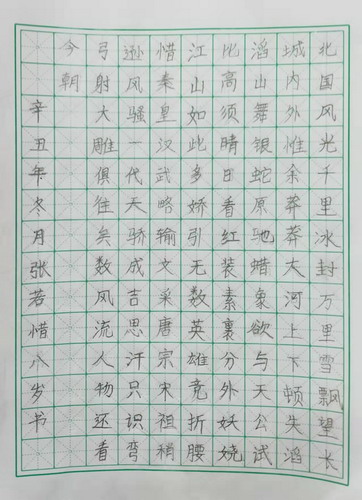 北国风光千里冰封万里雪飘望长
城内外惟余莽莽大河上下顿失滔
滔山舞银蛇原驰蜡象欲与天公试
比高须晴日看红装素裹分外妖娆
江山如此多娇引无数英雄竞折腰
惜秦皇汉武略输文采唐宗宋祖稍
逊风骚一代天骄成吉思汗只识弯
弓射大雕俱往矣数风流人物还看
今朝
辛丑年冬月张若惜八岁书